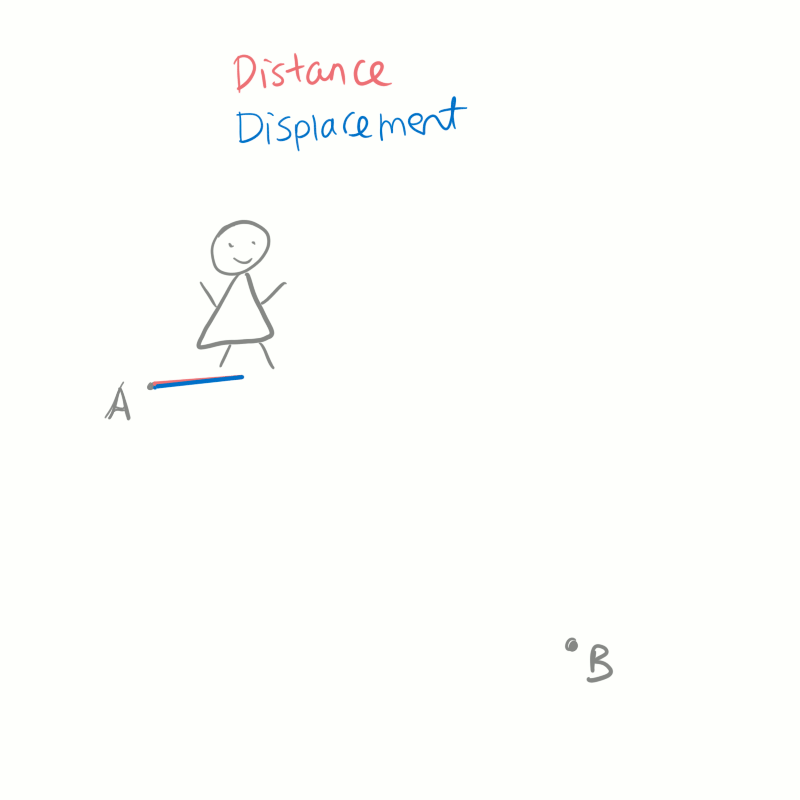 Distance
Displacement
A
B